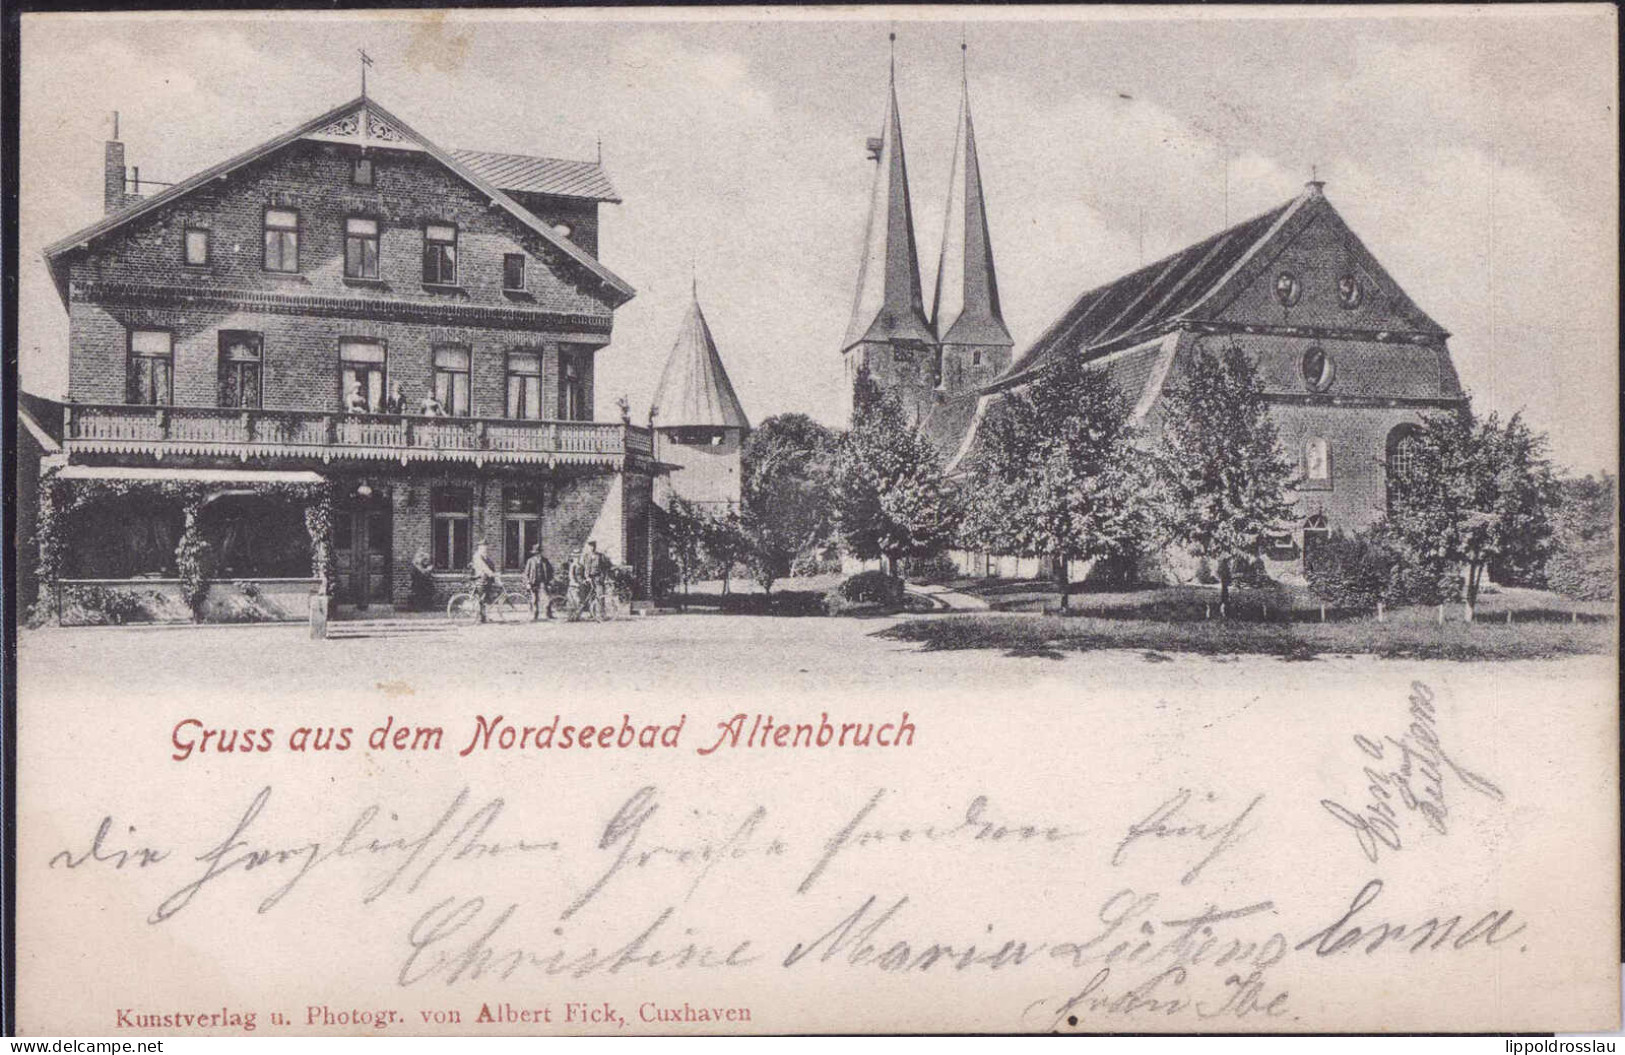 Gruss aus dem Nordseebad Altenbruch
Erna
Lütjens
Die herzlichsten Grüße senden Euch
Christine Maria Lütjens Erna.
Frau Ibe.
Kunstverlag u. Photogr. von Albert Fick, Cuxhaven
www.delcampe.net
lippoldrosslau